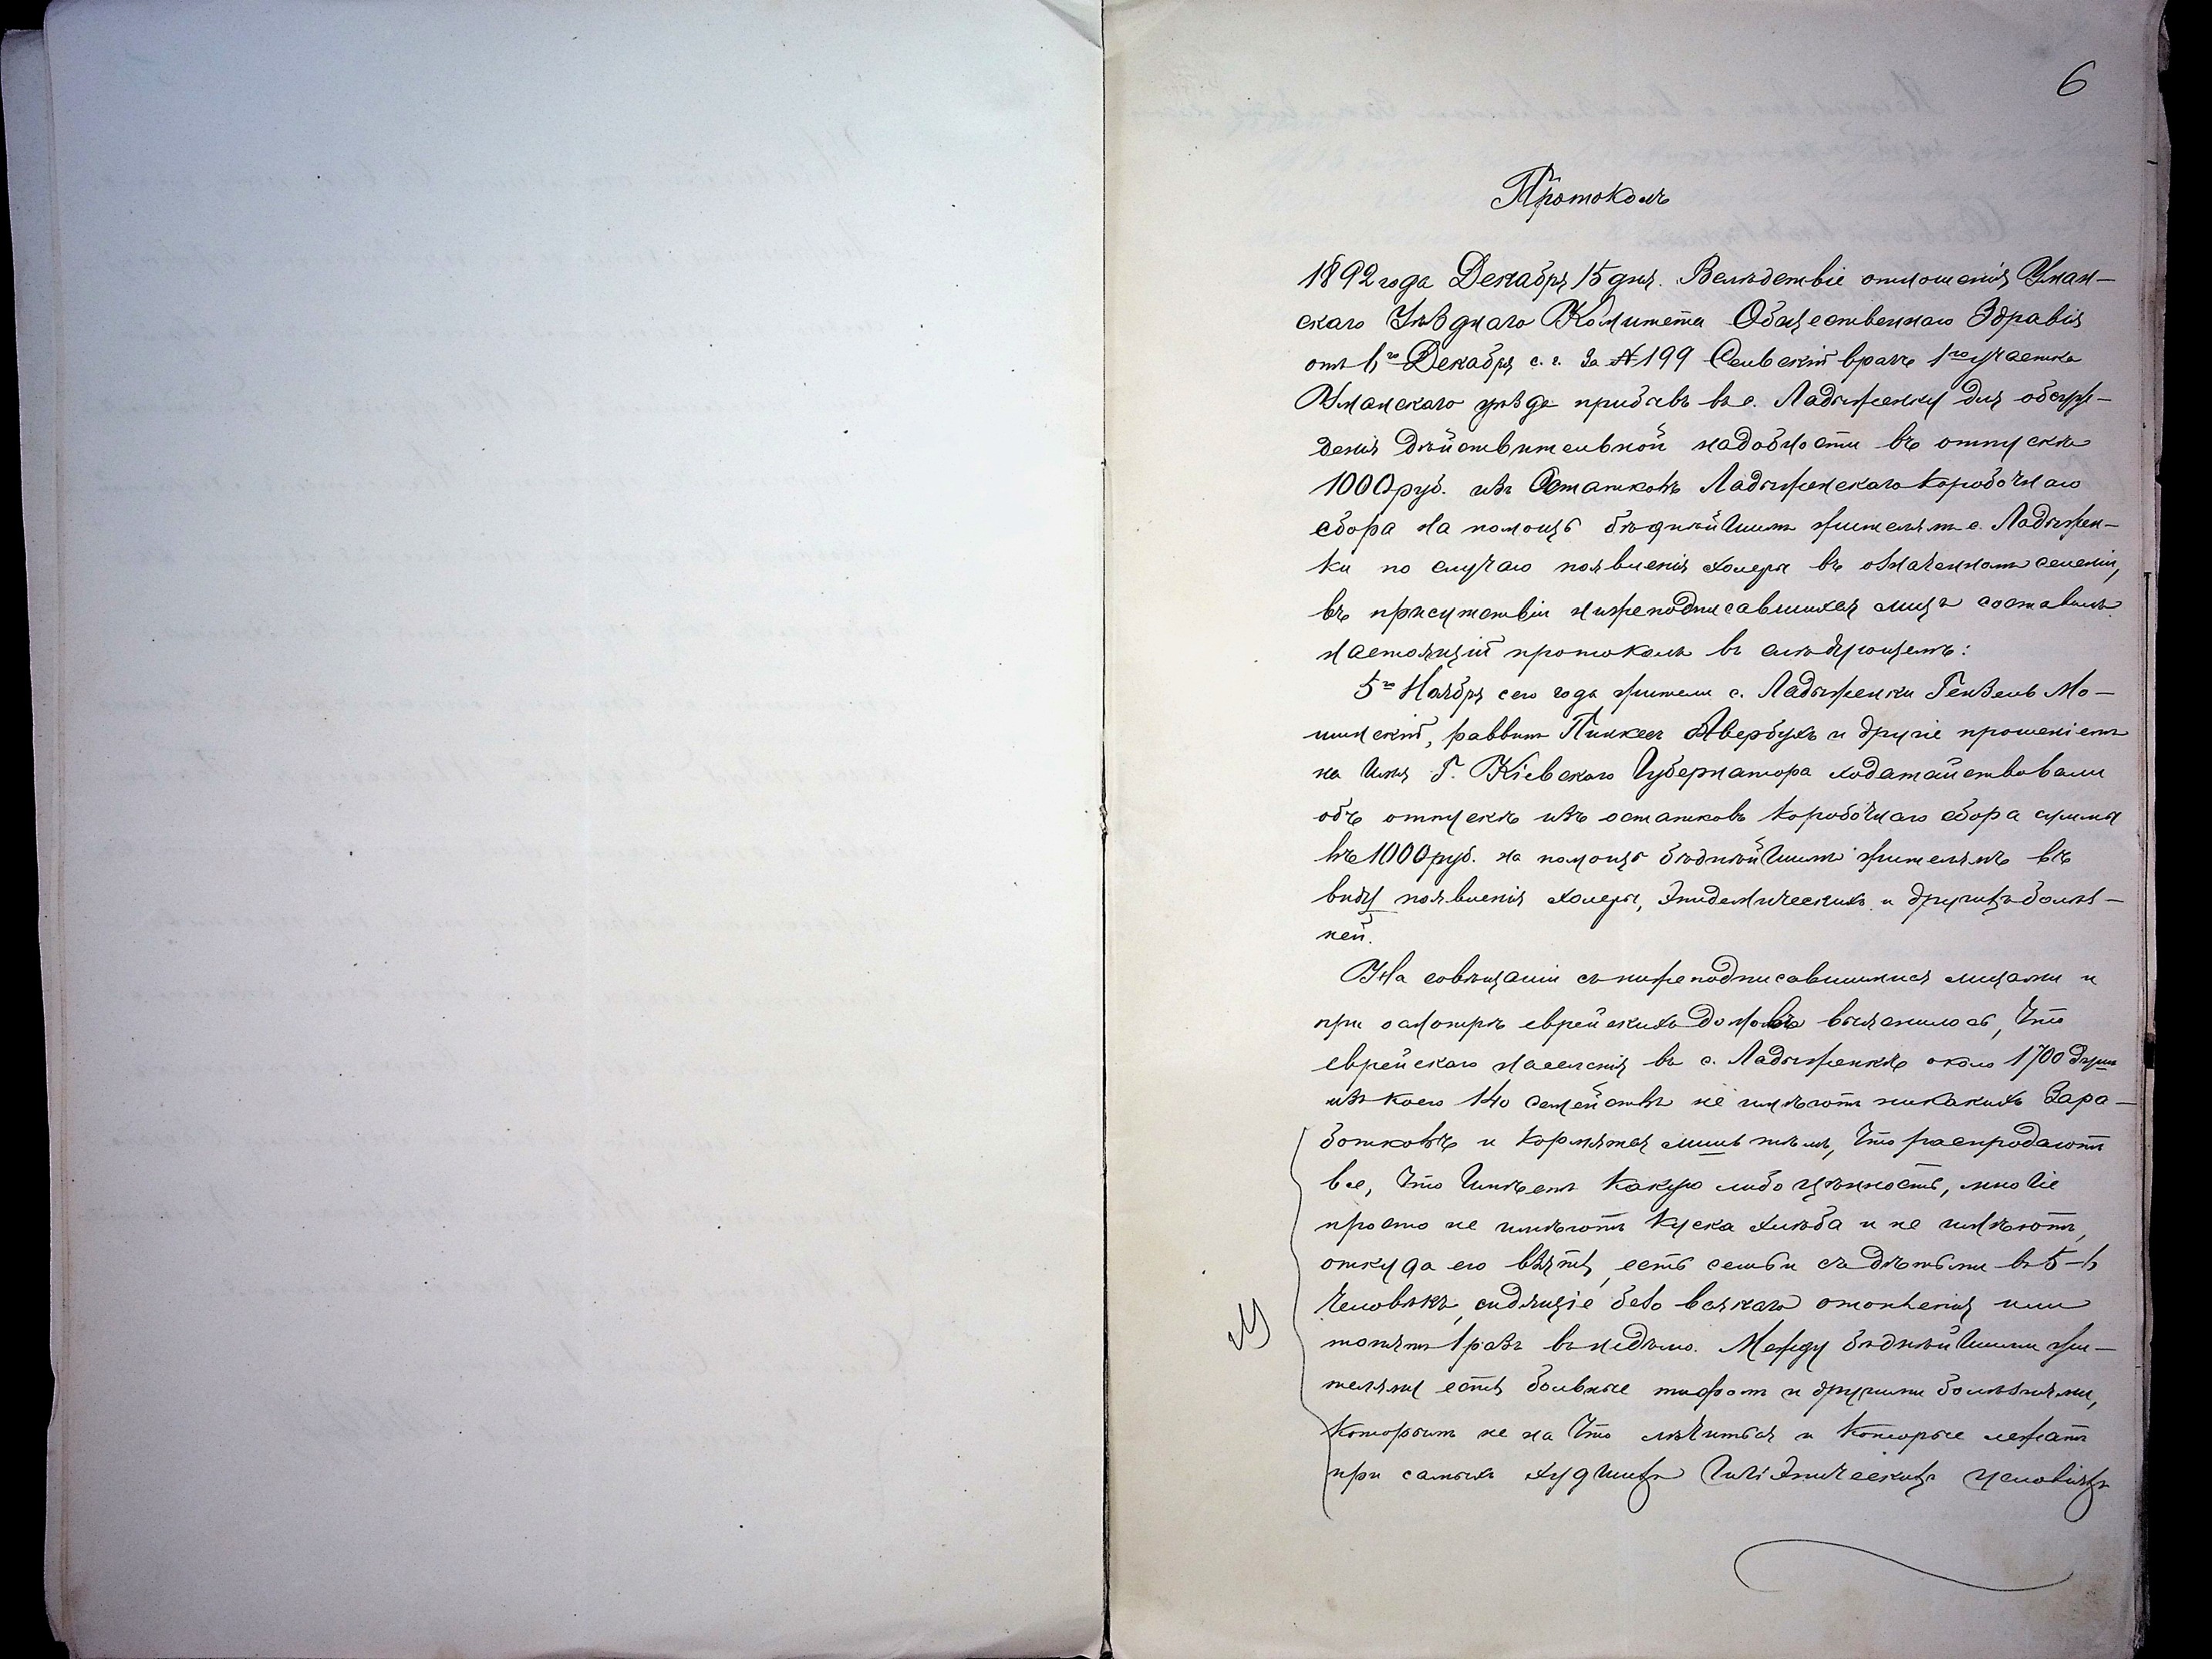 6
Протоколъ
1892 года Декабря 15 дня. Вслѣдствіе отношенія Уман-
скаго Уѣзднаго Комитета Общественнаго Здравія
отъ 6го Декабря с. г. за № 199 Сельскій врачъ 1го участка
Уманскаго уѣзда прибывъ въ с. Ладыженку для обсуж-
денія дѣйствительной надобности въ отпускѣ
1000 руб. изъ Остатковъ Ладыженскаго коробочнаго
сбора на помощь бѣднѣйшимъ жителямъ с. Ладыжен-
ки по случаю появленія холеры въ означенномъ селеніи,
въ присутствіи нижеподписавшихся лицъ составилъ
настоящій протоколъ въ слѣдующемъ:
5го Ноября сего года жители с. Ладыженки Гензель Мо-
шинскій, раввинъ Пинкес Авербухъ и другіе прошеніемъ
на Имя Г. Кіевскаго Губернатора ходатайствовали
объ отпускѣ изъ остатковъ коробочнаго сбора суммы
въ 1000 руб. на помощь бѣднѣйшимъ жителямъ въ
виду появленія холеры, эпидемическихъ и другихъ болѣз-
ней.
На совѣщаніи съ нижеподписавшимися лицами и
при осмотрѣ еврейскихъ домовъ выяснилось, что
еврейскаго населенія въ с. Ладыженкѣ около 1700 душъ
изъ коего 140 семействъ не имѣютъ никакихъ Зара-
ботковъ и кормятся лишь тѣмъ, что распродаютъ
все, что Имѣетъ какую либо цѣнность, многіе
просто не имѣютъ куска хлѣба и не имѣютъ,
откуда его взять, есть семьи съ дѣтьми въ 5-6
человѣкъ, сидящіе безъ всякаго отопленія или
топятъ 1 разъ въ недѣлю. Между бѣднѣйшими жи-
телями есть больные тифомъ и другими болѣзнями,
которымъ не на что лѣчиться и которые лежатъ
при самыхъ худшихъ Гигіэническихъ условіяхъ